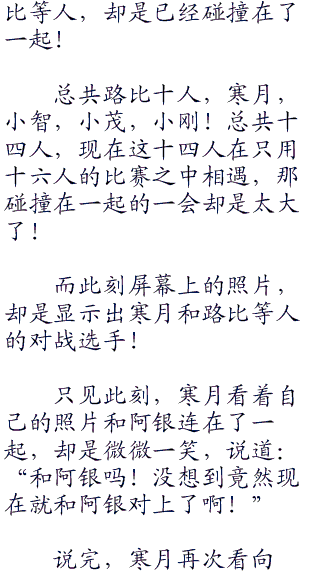 比等人，却是已经碰撞在了
一起！
总共路比十人，寒月，
小智，小茂，小刚！总共十
四人，现在这十四人在只用
十六人的比赛之中相遇，那
碰撞在一起的一会却是太大
了！
而此刻屏幕上的照片，
却是显示出寒月和路比等人
的对战选手！
只见此刻，寒月看着自
己的照片和阿银连在了一
起，却是微微一笑，说道：
“和阿银吗！没想到竟然现
在就和阿银对上了啊！”
说完，寒月再次看向